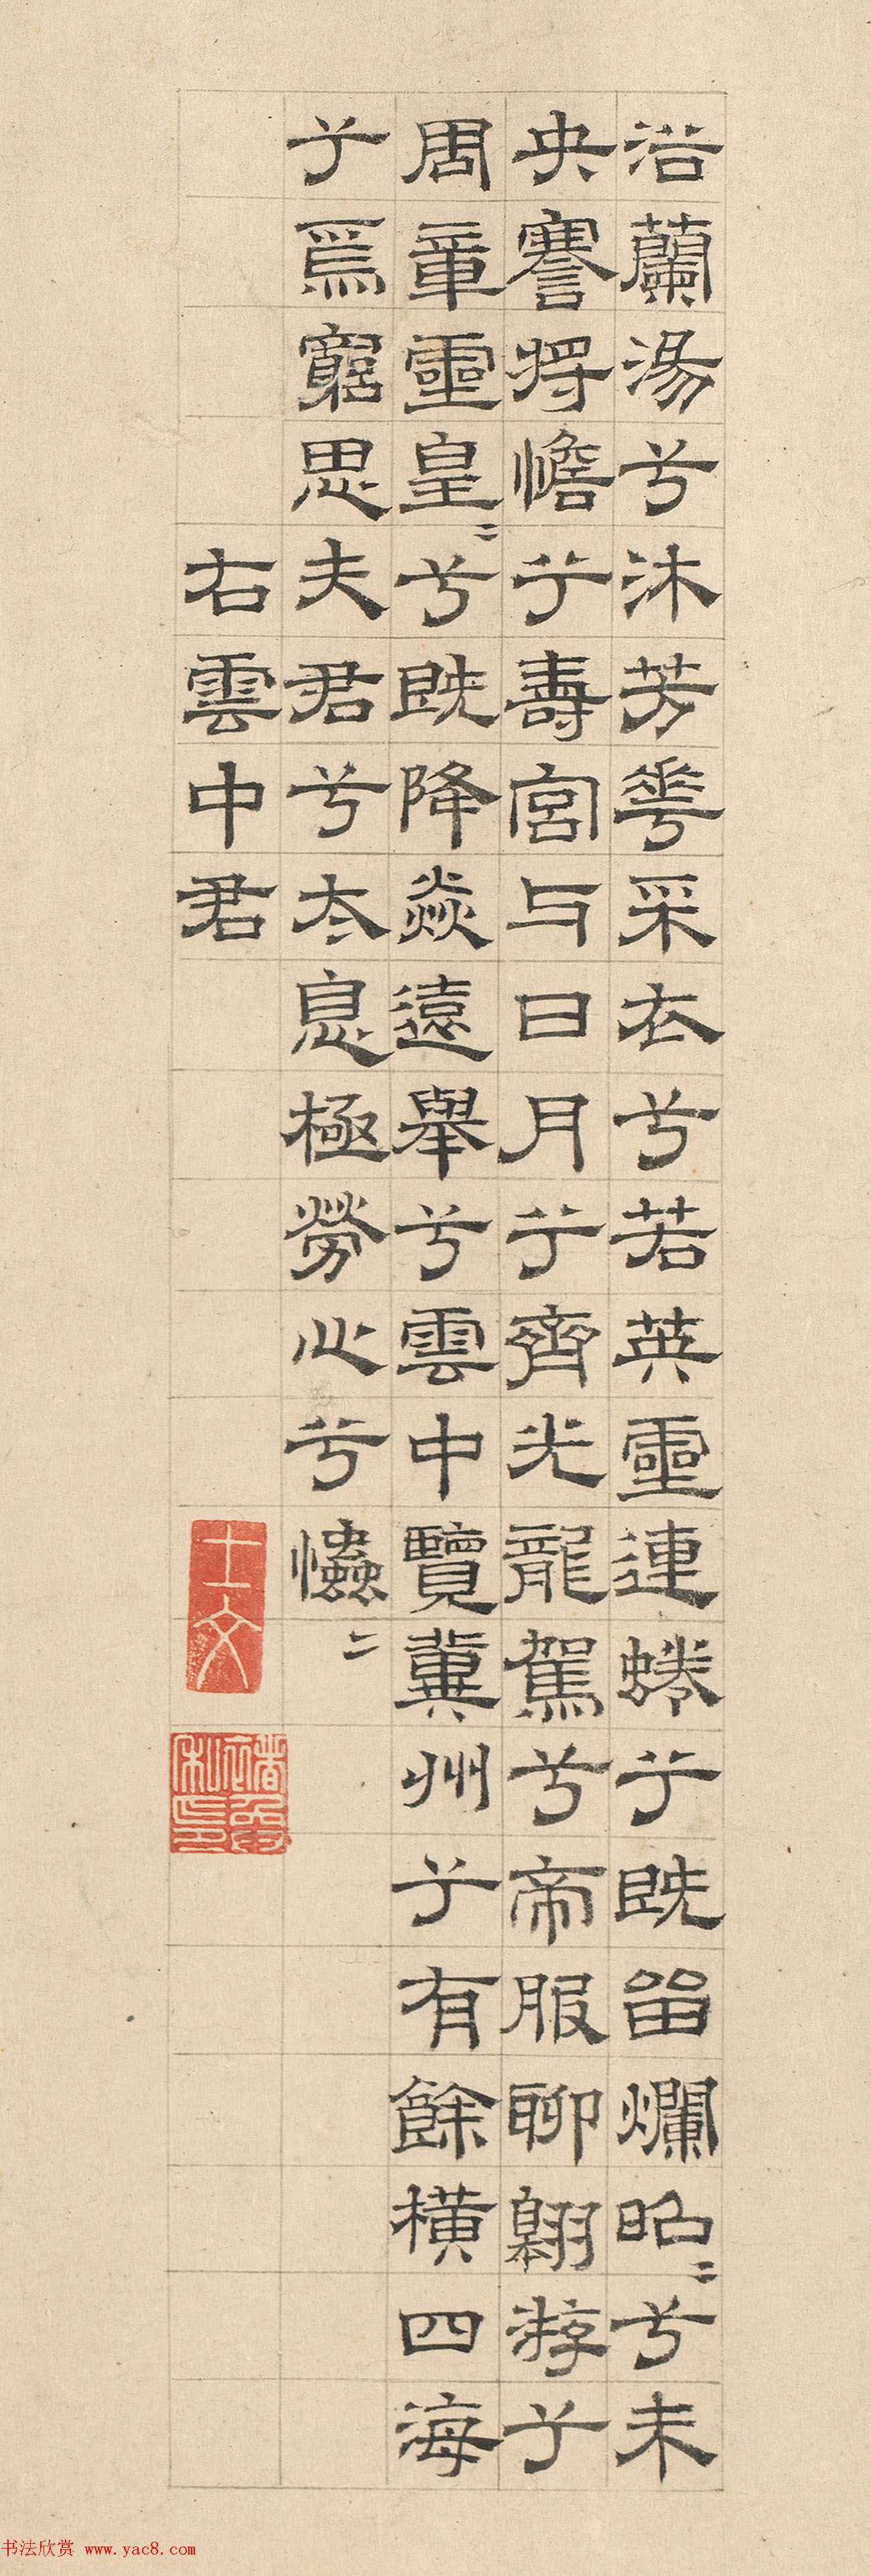 浴蘭湯兮沐芳華采衣兮若英靈連蜷兮既留爛昭〻兮未
央謇將憺兮壽宮与日月兮齊光龍駕兮帝服聊翱游兮
周章靈皇〻兮既降猋遠舉兮雲中覽冀州兮有餘橫四海
兮焉窮思夫君兮太息極勞心兮𢥞〻
右雲中君
书法欣赏 www.yac8.com